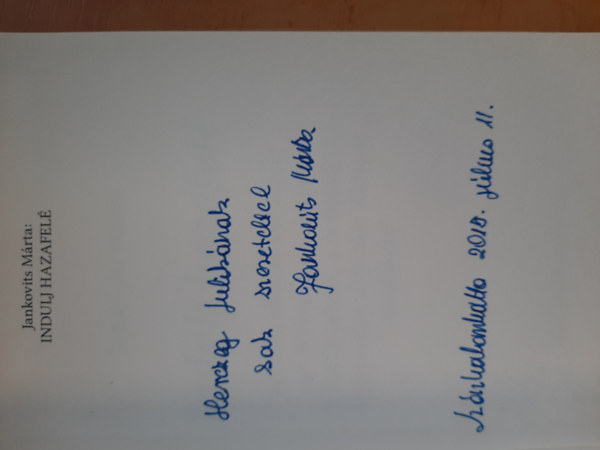 Jankovits Márta:
INDULJ HAZAFELÉ
Herczeg Julikának
sok szeretettel
Jankovits Márta
Százhalombatta 2018. július 11.